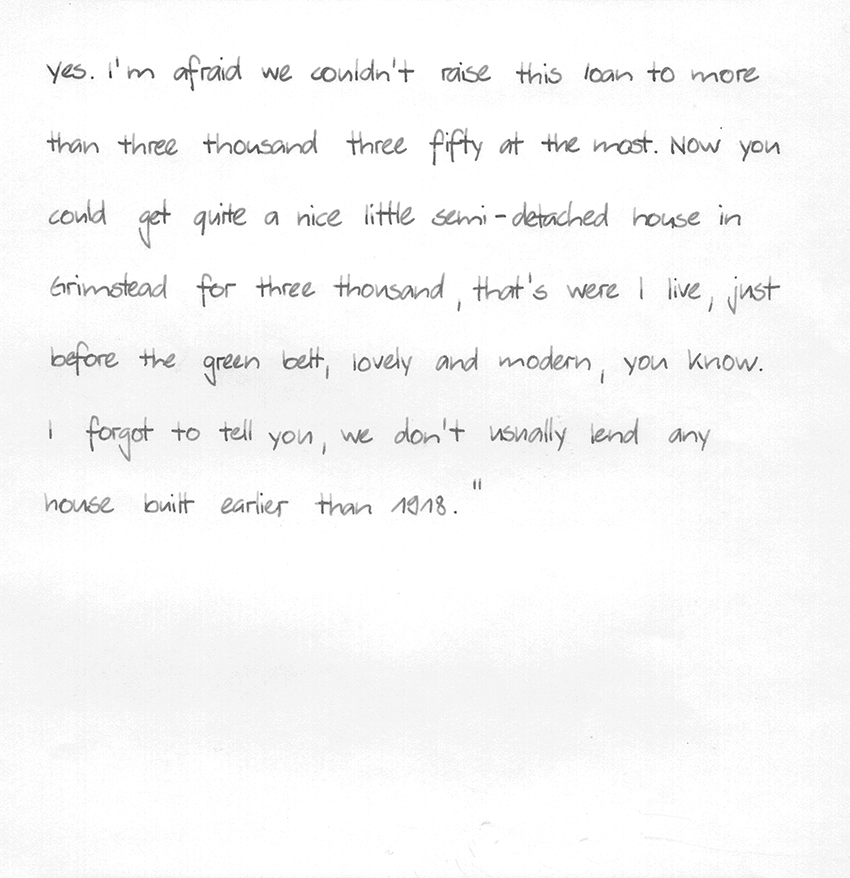 yes. I'm afraid we couldn't raise this loan to more
than three thousand three fifty at the most. Now you
could get quite a nice little semi-detached house in
Grimstead for three thousand, that's were I live, just
before the green belt, lovely and modern, you know.
I forgot to tell you, we don't usually lend any
house built earlier than 1918."